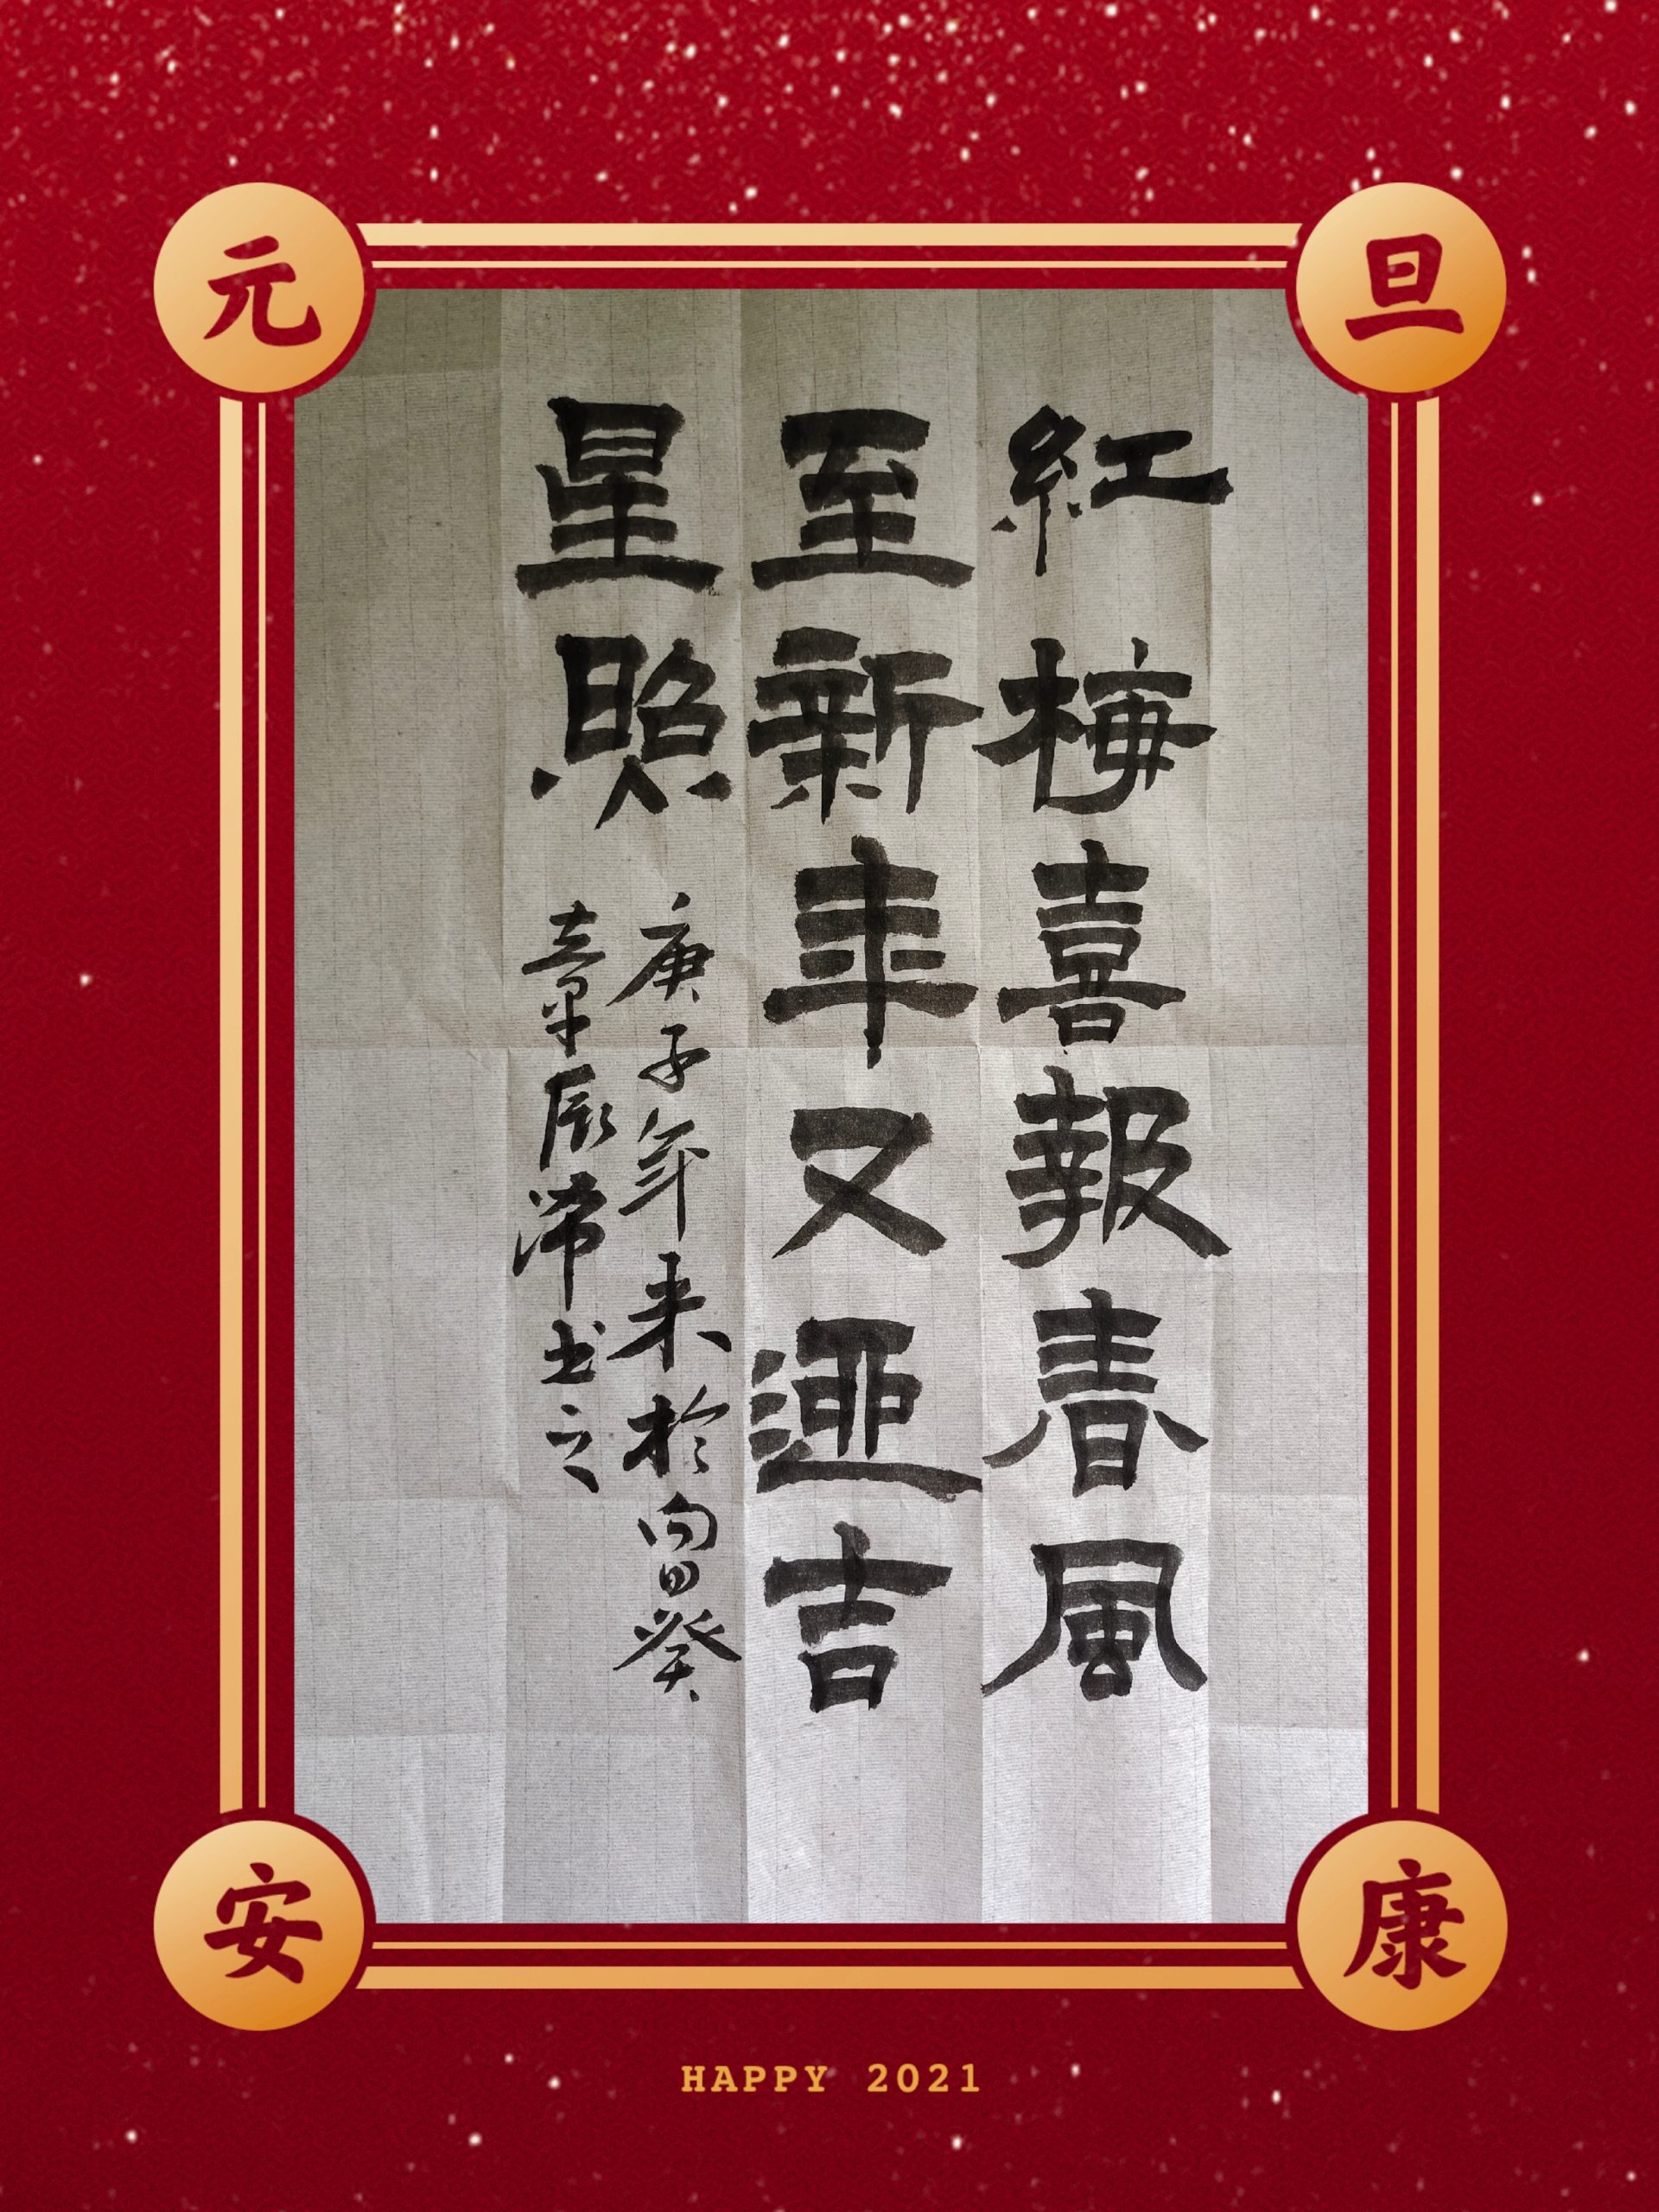 元旦
紅梅喜報春風
至新年又迎吉
星照
庚子年末於向陽葵
書之
安康
HAPPY 2021